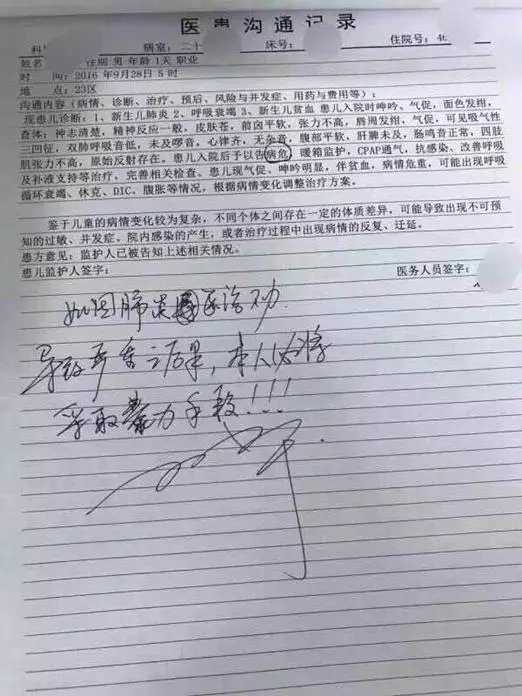 医患沟通记录
科 病室：二十 床号： 住院号：4t
姓名 性别 男 年龄 1天 职业
时 间：2016 年9月28日 5 时
地 点：23区
沟通内容（病情、诊断、治疗、预后、风险与并发症、用药与费用等）：
现患儿诊断：1、新生儿肺炎 2、呼吸衰竭 3、新生儿贫血 患儿入院时呻吟、气促，面色发绀，
查体：神志清楚，精神反应一般，皮肤苍，前囟平软，张力不高，唇周发绀，气促，可见吸气性
三凹征，双肺呼吸音低，未及啰音，心律齐，无杂音，腹部平软，肝脾未及，肠鸣音正常，四肢
肌张力不高，原始反射存在。患儿入院后予以告病危，暖箱监护，CPAP通气，抗感染、改善呼吸
及补液支持等治疗，完善相关检查。患儿现气促、呻吟明显，伴贫血，病情危重，可能出现呼吸
循环衰竭、休克、DIC、腹胀等情况，根据病情变化调整治疗方案。
鉴于儿童的病情变化较为复杂，不同个体之间存在一定的体质差异，可能导致出现不可预
知的过敏、并发症、院内感染的产生，或者治疗过程中出现病情的反复、迁延。
患方意见：监护人已被告知上述相关情况。
患儿监护人签字： 医务人员签字：
如因肺炎医治不力
导致严重之后果，本人
采取暴力手段!!!